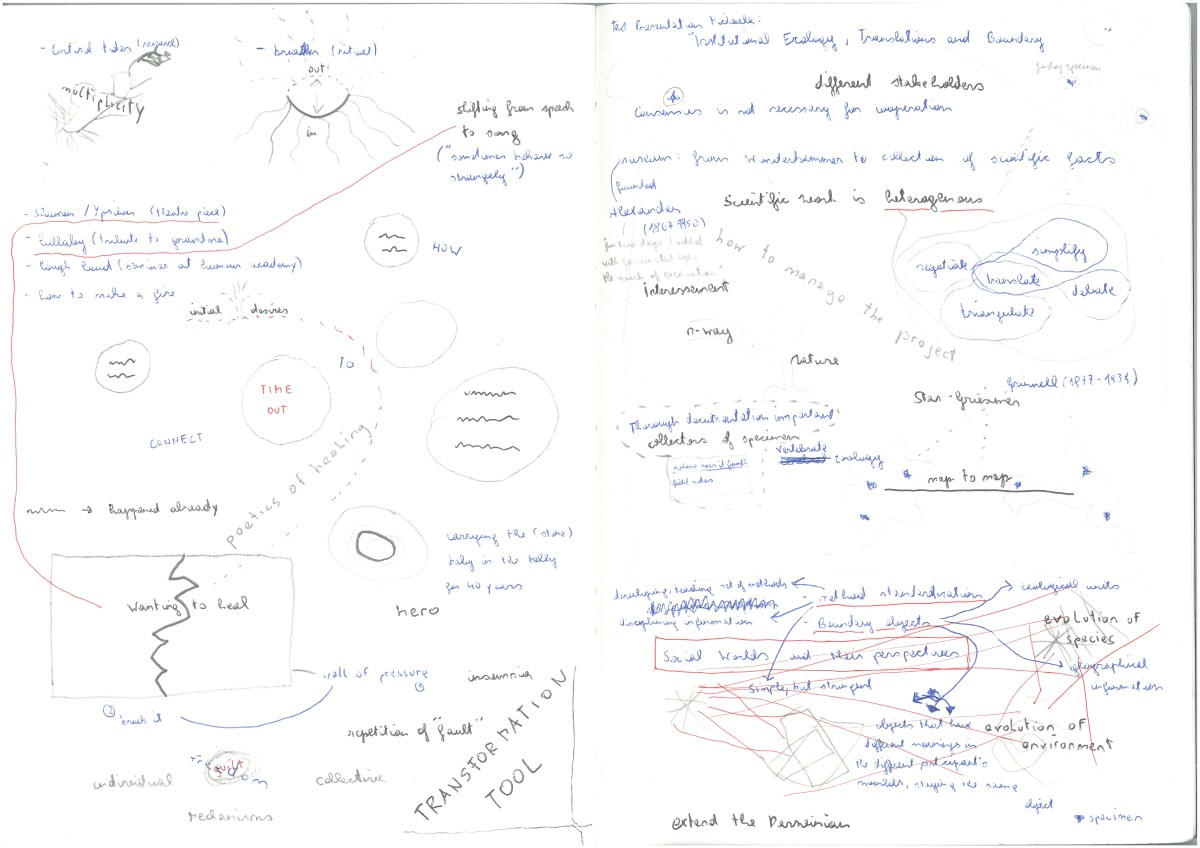 - breathe (ritual)
out
in
multiplicity
shifting from speech
to song
("sometimes behave so
strangely")
- Lullaby (tribute to grandma)
- Even to make a fire
initial desires
40W
TO
TIME
OUT
CONNECT
poetics of healing
→ happened already
carrying the (stone)
baby in the belly
for 40 years
hero
Wanting to heal
wall of pressure
①
② break it
insomnia
repetition of "fault"
TRANSFORMATION
TOOL
guilt
individual
collective
mechanisms
Test Presentation
"Institutional Ecology, Translations and Boundary
finding specimen
different stakeholders
Consensus is not necessary for cooperation
museum: from Wunderkammer to collection of scientific facts
founded
Alexander
(1867-1950)
Scientific work is heterogenous
how to manage the project
negotiate
simplify
translate
debate
triangulate
interessement
n-way
nature
Grinnell (1877-1939)
Star-Griesemer
Thorough documentation important
collectors of specimen
field notes
vertebrate
zoology
map to map
- method standardization
disciplining information
- Boundary objects
ecological units
evolution of
species
Social Worlds and their perspectives
geographical
information
Simple, but stringent
objects that have
different meanings in
the different participant's
worlds, studying the same
object
evolution of
environment
extend the Darwinian
specimen